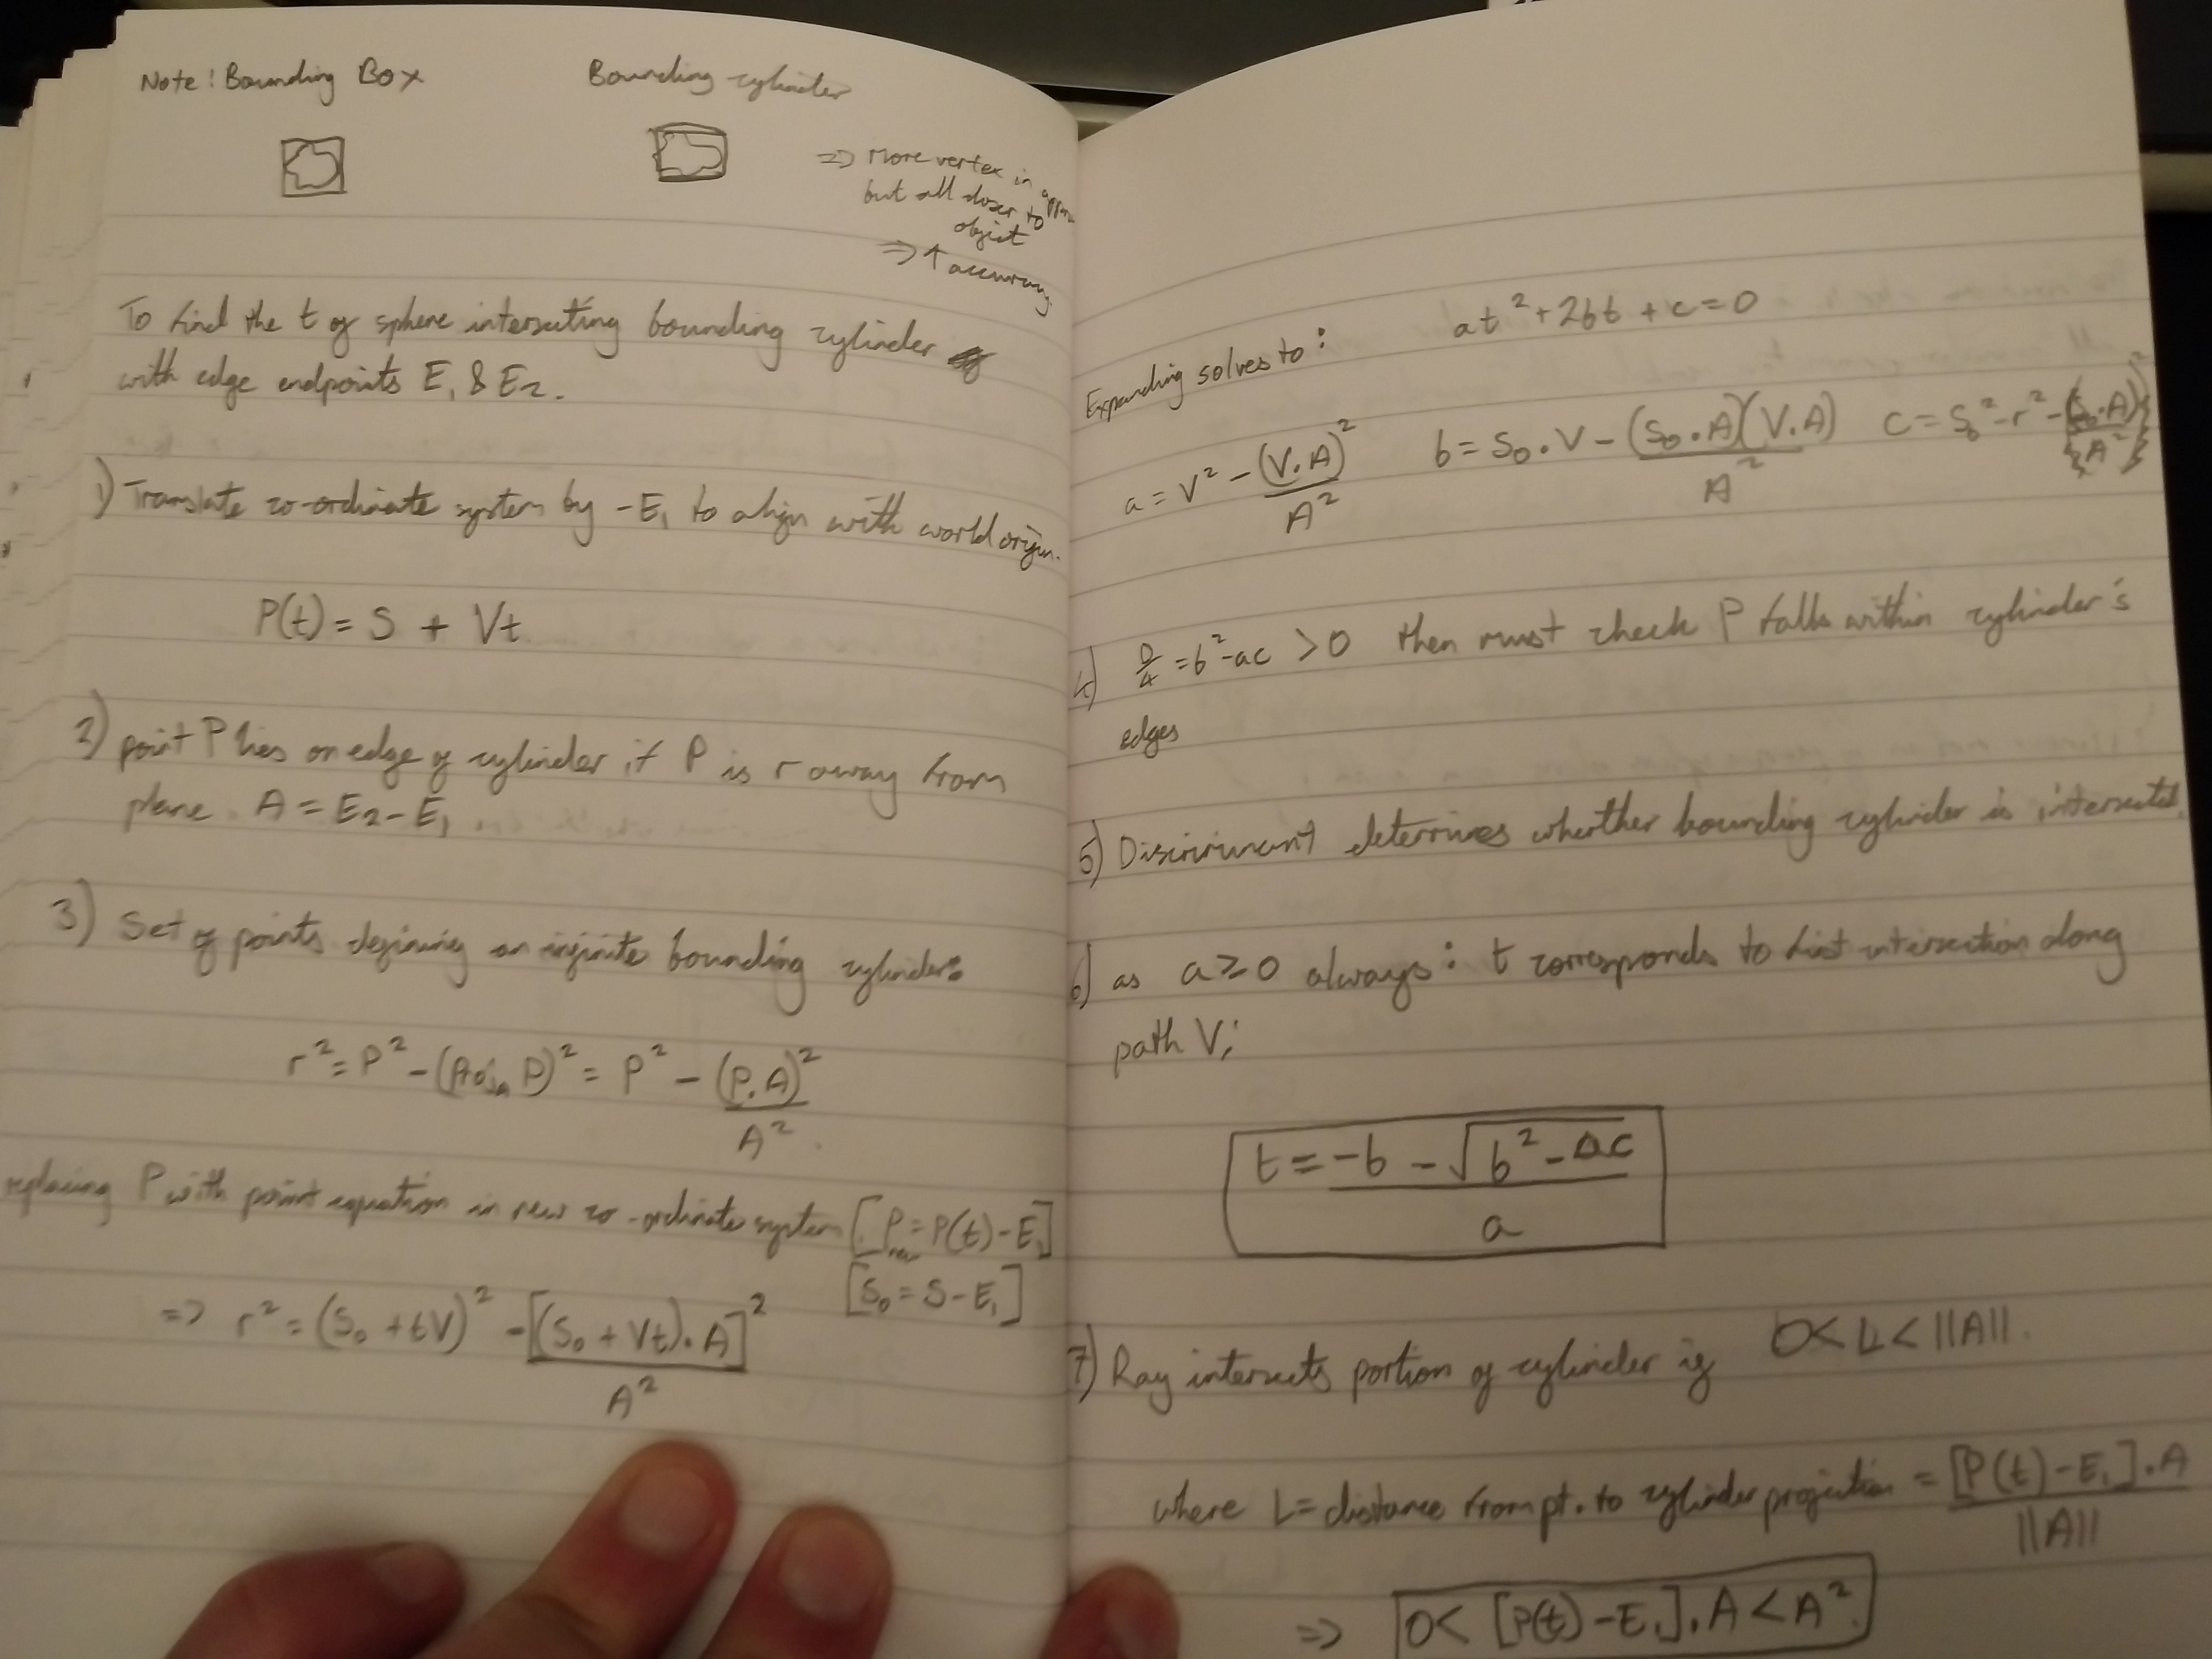 Note: Bounding Box
Bounding cylinder
=> More vertex in approx
but all closer to
object
=> ↑ accuracy
To find the t of sphere intersecting bounding cylinder
with edge endpoints E₁ & E₂.
1) Translate co-ordinate system by -E₁ to align with world origin.
P(t) = S + Vt
2) point P lies on edge of cylinder if P is r away from
plane. A = E₂ - E₁
3) Set of points defining an infinite bounding cylinder:
r² = P² - (Proj_A P)² = P² - (P.A)² / A².
replacing P with point equation in new co-ordinate system [P_new = P(t) - E₁]
[S₀ = S - E₁]
=> r² = (S₀ + tV)² - [(S₀ + Vt).A]² / A²
Expanding solves to: at² + 2bt + c = 0
a = V² - (V.A)² / A² b = S₀.V - (S₀.A)(V.A) / A² c = S₀² - r² - (S₀.A)² / A²
4) D/4 = b² - ac > 0 then must check P falls within cylinder's
edges
5) Discriminant determines wherther bounding cylinder is intersected.
6) as a ≥ 0 always: t corresponds to first intersection along
path V;
t = -b - √(b² - ac) / a
7) Ray intersects portion of cylinder if 0 < L < ||A||.
where L = distance from pt. to cylinder projection = [P(t) - E₁].A / ||A||
=> 0 < [P(t) - E₁].A < A².